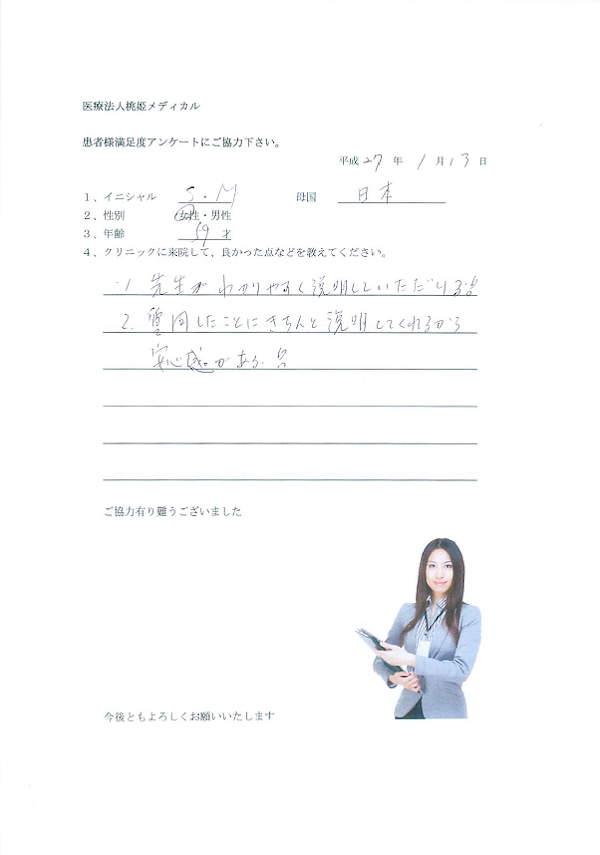 医療法人桃姫メディカル
患者様満足度アンケートにご協力下さい。
平成 27 年 1 月 13 日
1、イニシャル S.M 母国 日本
2、性別 女性・男性
3、年齢 59 才
4、クリニックに来院して、良かった点などを教えてください。
1 先生がわかりやすく説明していただける
2. 質問したことにきちんと説明してくれるから
安心感がある
ご協力有り難うございました
今後ともよろしくお願いいたします